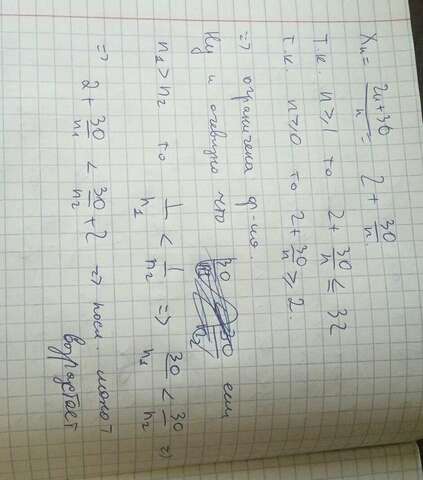 Xn = 2n+30/n = 2 + 30/n.
Т.к. n ≥ 1 то 2 + 30/n ≤ 32
Т.к. n ≥ 0 то 2 + 30/n ≥ 2.
=> ограничена ф-ия.
Ну и очевидно что если
n1 > n2 то 1/n1 < 1/n2 => 30/n1 < 30/n2 =>
=> 2 + 30/n1 < 30/n2 + 2 => посл. монот
возрастает